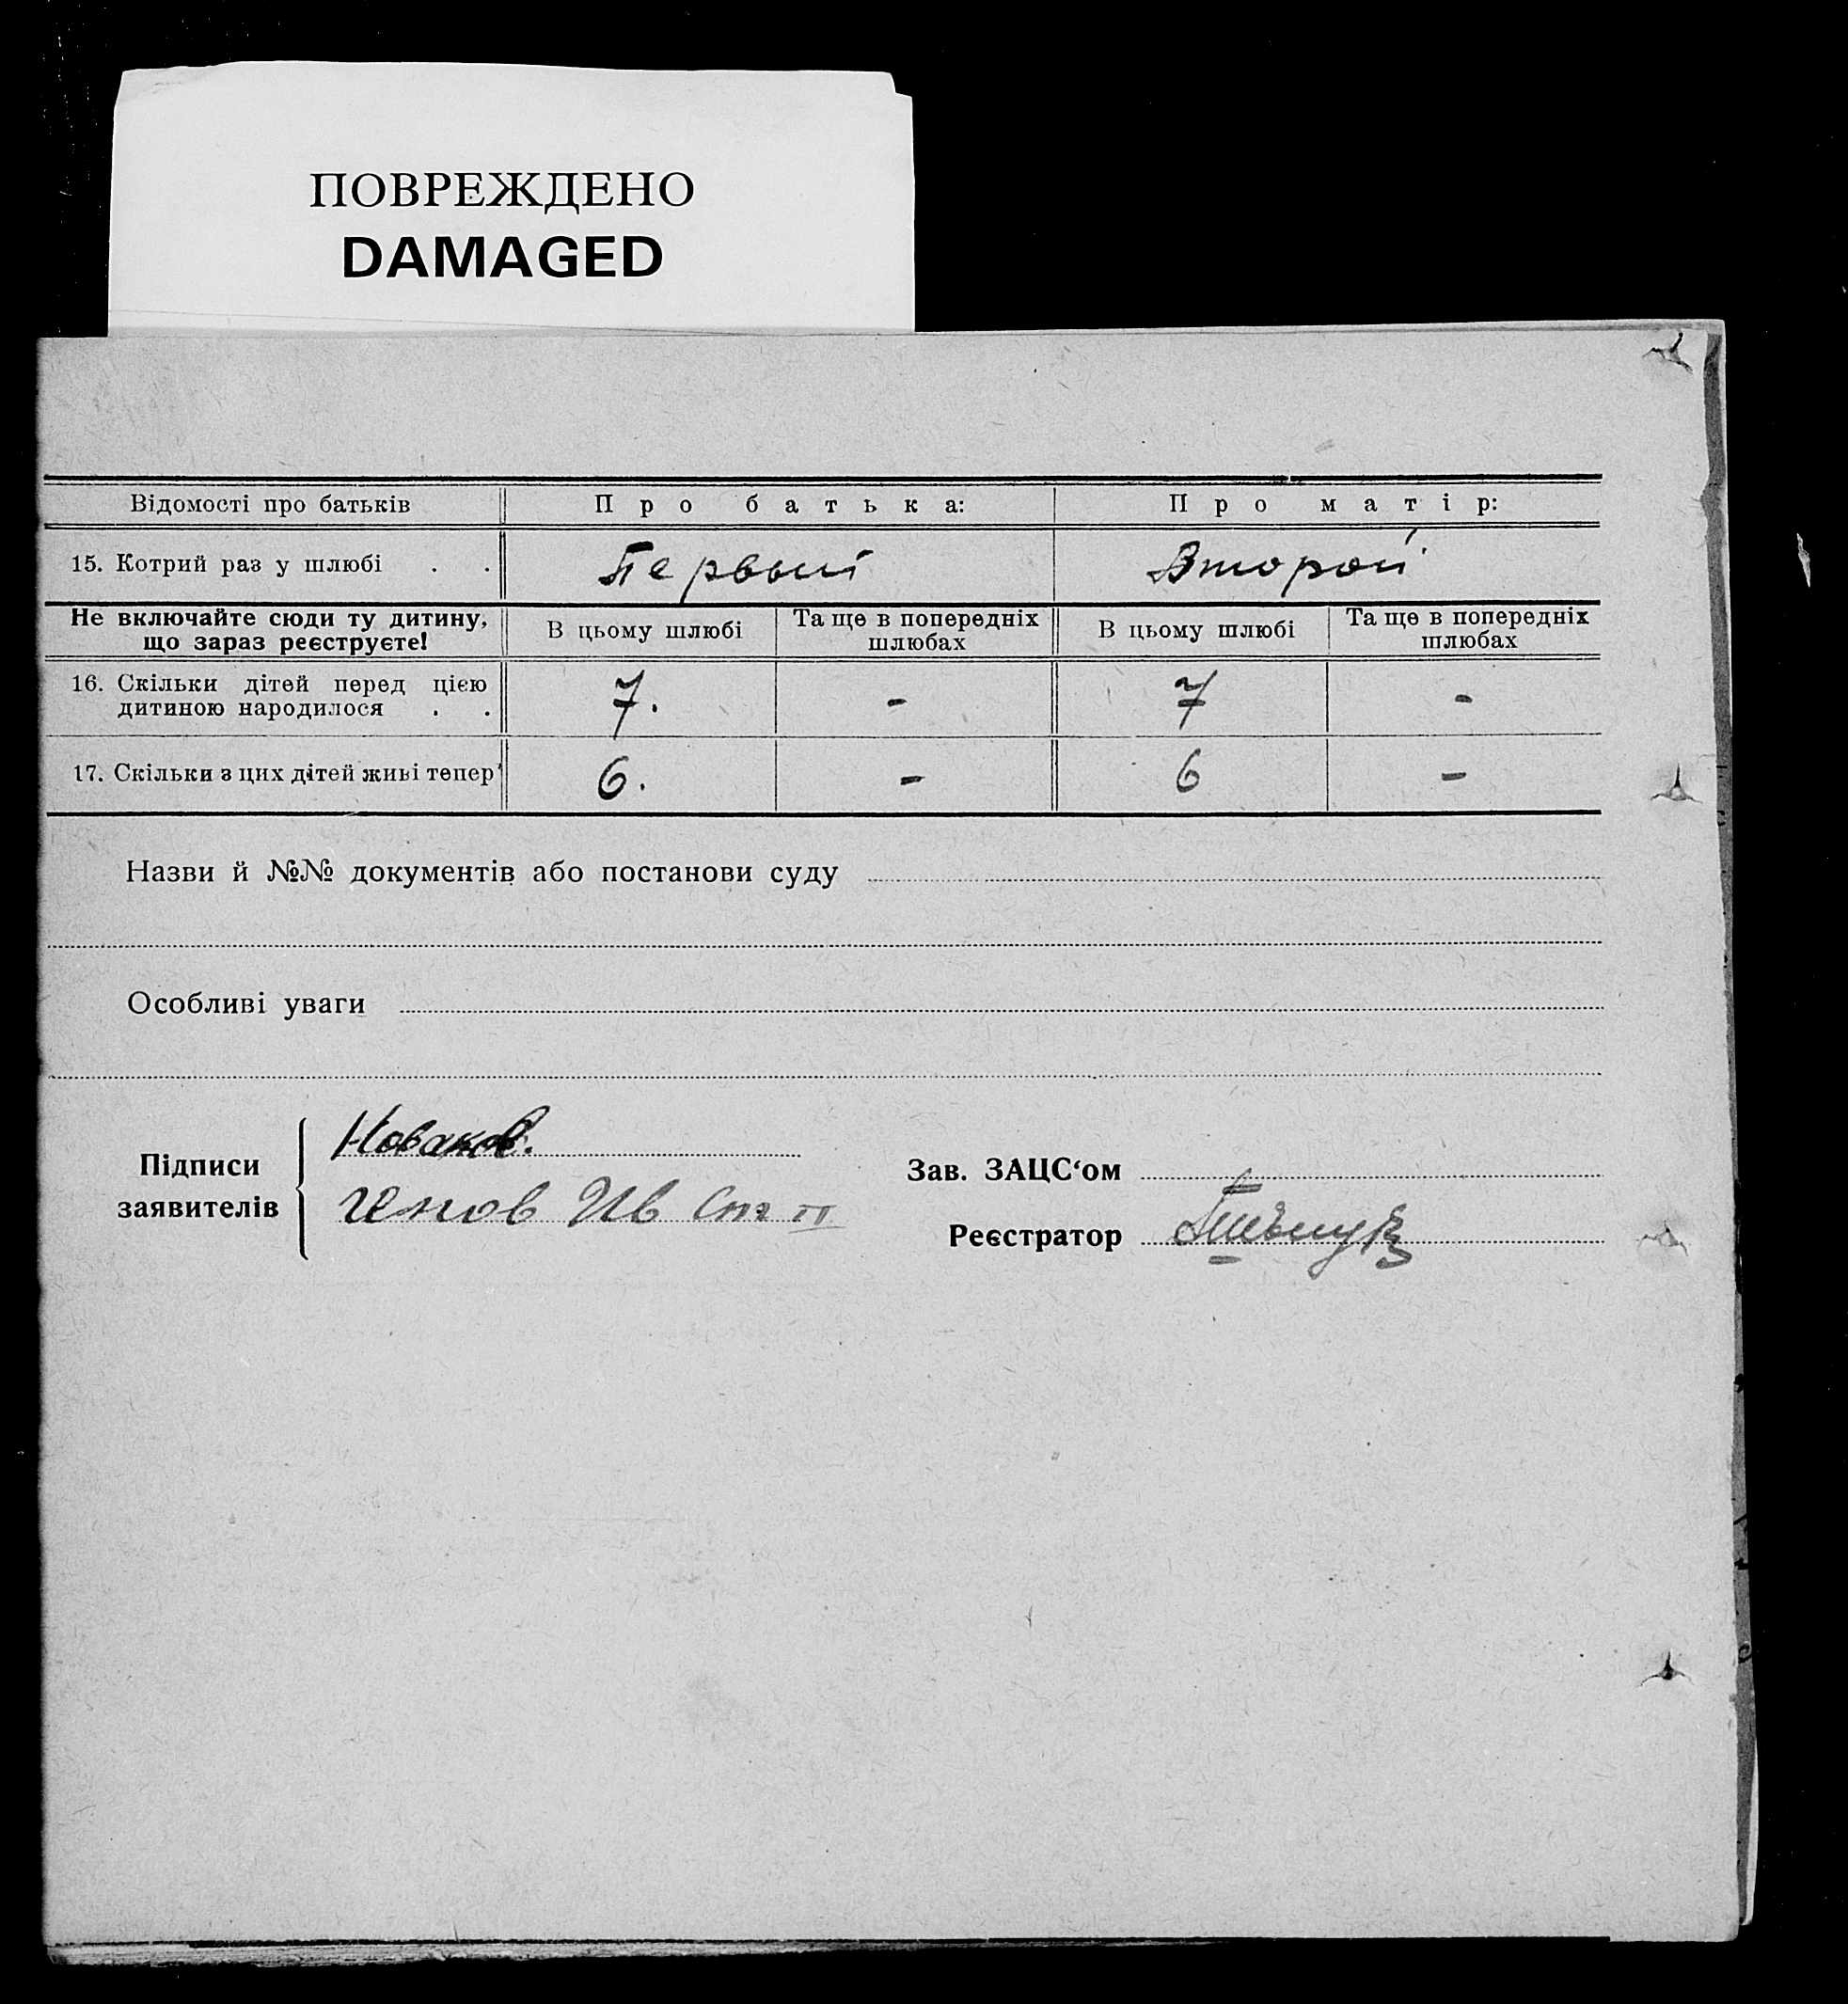 ПОВРЕЖДЕНО
DAMAGED
Відомості про батьків
Про батька:
Про матір:
15. Котрий раз у шлюбі . .
Первый
Второй
Не включайте сюди ту дитину,
що зараз реєструєте!
В цьому шлюбі
Та ще в попередніх
шлюбах
В цьому шлюбі
Та ще в попередніх
шлюбах
16. Скільки дітей перед цією
дитиною народилося . .
7.
-
7
-
17. Скільки з цих дітей живі тепер
6.
-
6
-
Назви й №№ документів або постанови суду
Особливі уваги
Підписи
заявителів
Новаков.
Ив
Зав. ЗАЦС‘ом
Реєстратор